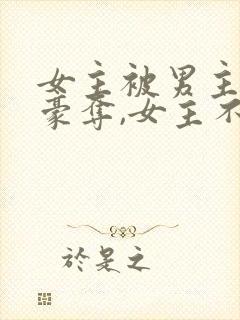 女主被男主
豪夺,女主不
於是之